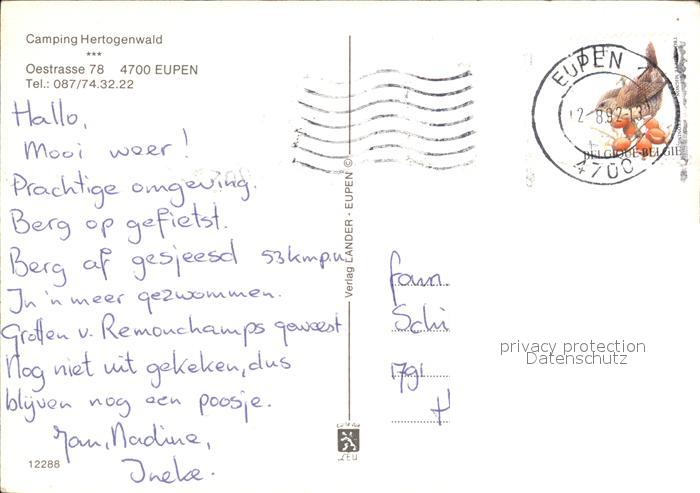 Camping Hertogenwald
***
Oestrasse 78 4700 EUPEN
Tel.: 087/74.32.22
Hallo,
Mooi weer!
Prachtige omgeving.
Berg op gefietst.
Berg af gesjeesd 53kmp.u.
In 'n meer gezwommen.
Grotten v. Remouchamps geweest
Nog niet uit gekeken, dus
blijven nog een poosje.
Jan, Nadine,
Ineke.
12288
Verlag LANDER · EUPEN ©
EUPEN 1
12-8.92-13
4700
BELGIQUE-BELGIE
fam.
Schi
1791
H
privacy protection
Datenschutz